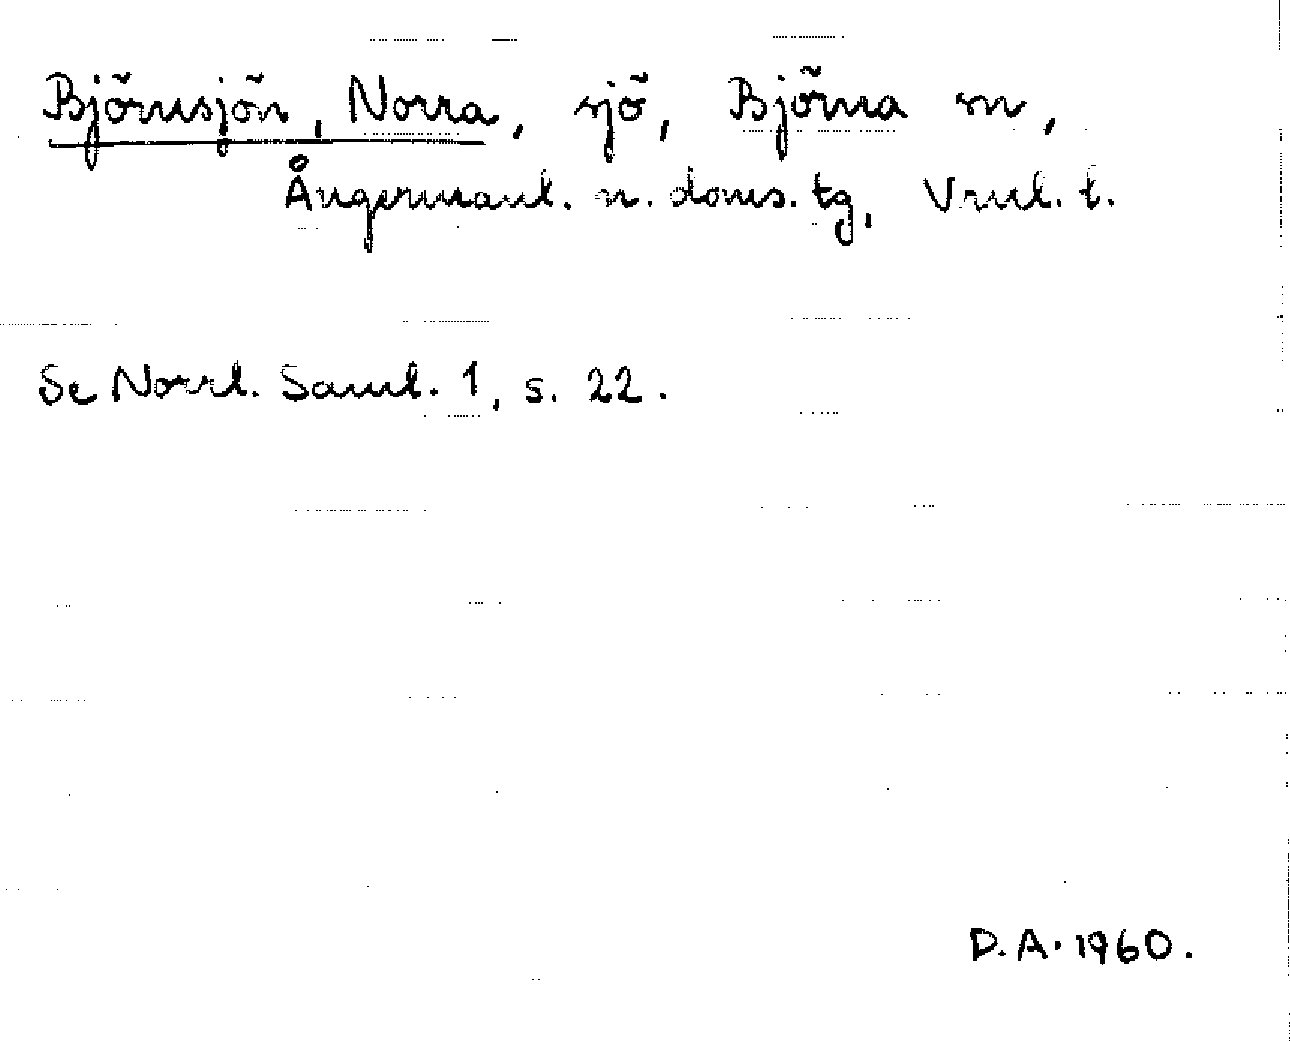 Björnsjön, Norra, sjö, Björna sn,
Ångermanl. n. doms. tg, Vnl. l.
Se Norrl. Saml. 1, s. 22.
D.A. 1960.